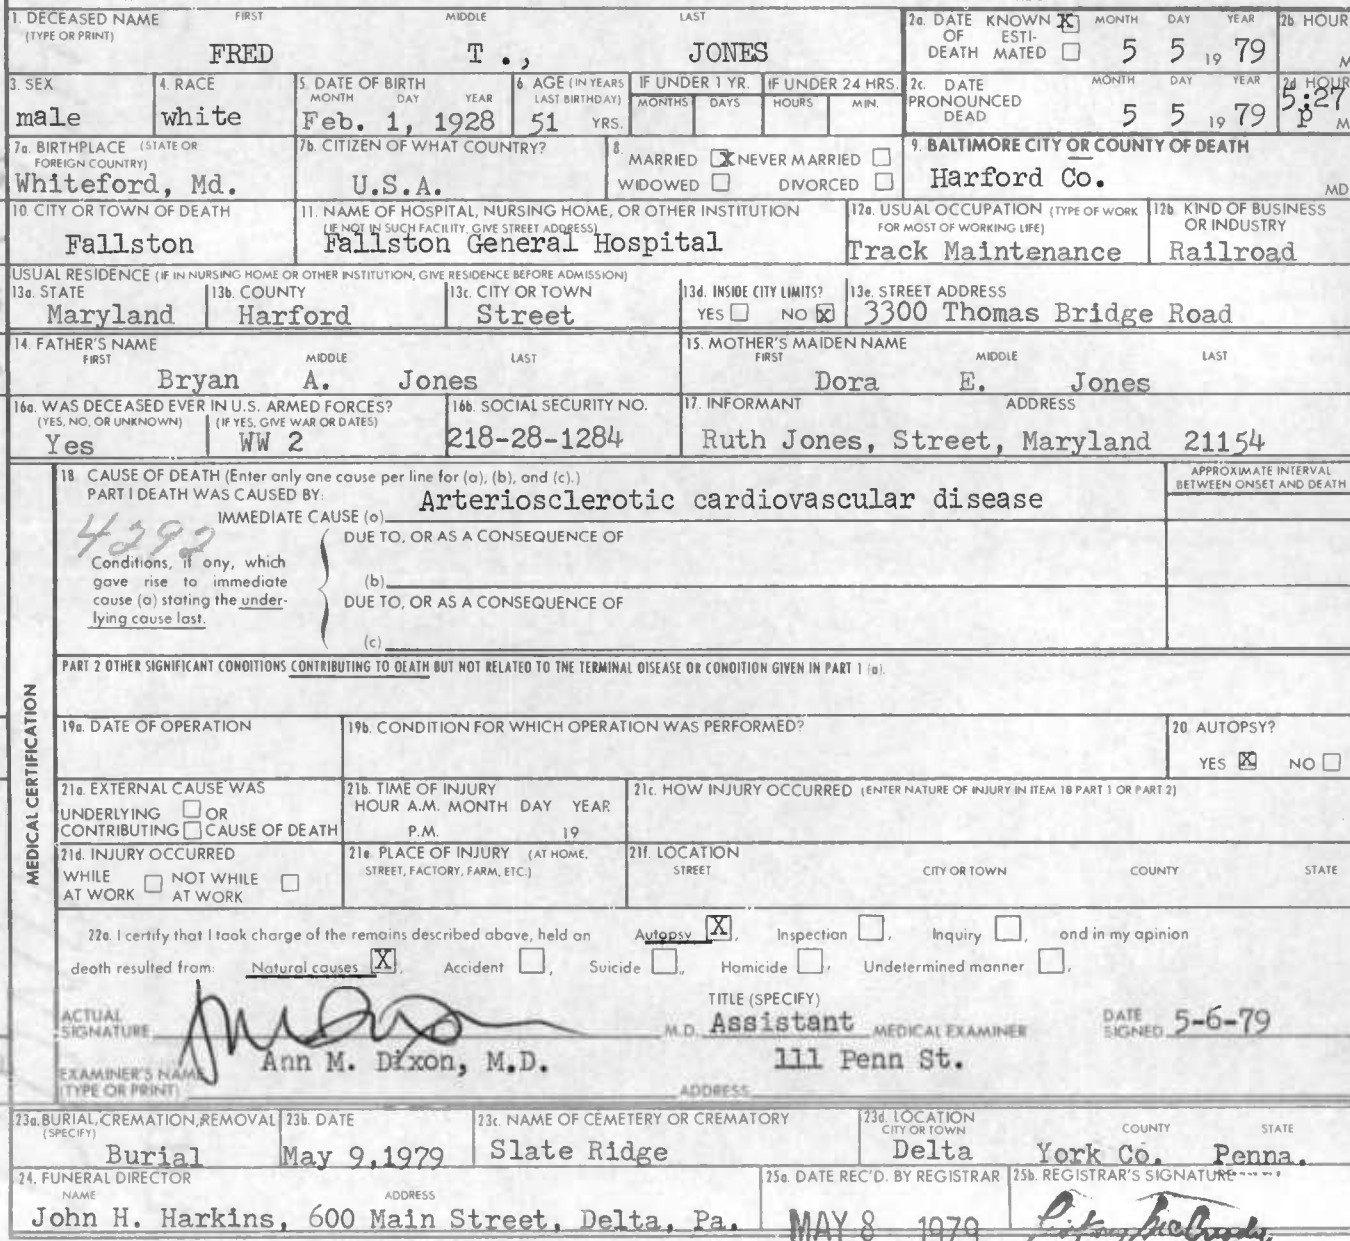 1. DECEASED NAME FIRST MIDDLE LAST
(TYPE OR PRINT)
FRED T., JONES
2a. DATE OF DEATH KNOWN X ESTI-MATED MONTH DAY YEAR
5 5 19 79
2b. HOUR
M
3. SEX
male
4. RACE
white
5. DATE OF BIRTH
MONTH DAY YEAR
Feb. 1, 1928
6. AGE (IN YEARS LAST BIRTHDAY)
51 YRS.
IF UNDER 1 YR.
MONTHS DAYS
IF UNDER 24 HRS.
HOURS MIN.
2c. DATE PRONOUNCED DEAD MONTH DAY YEAR
5 5 19 79
2d HOUR
5:27
P M
7a. BIRTHPLACE (STATE OR FOREIGN COUNTRY)
Whiteford, Md.
7b. CITIZEN OF WHAT COUNTRY?
U.S.A.
8.
MARRIED X NEVER MARRIED
WIDOWED DIVORCED
9. BALTIMORE CITY OR COUNTY OF DEATH
Harford Co.
MD
10. CITY OR TOWN OF DEATH
Fallston
11. NAME OF HOSPITAL, NURSING HOME, OR OTHER INSTITUTION
(IF NOT IN SUCH FACILITY, GIVE STREET ADDRESS)
Fallston General Hospital
12a. USUAL OCCUPATION (TYPE OF WORK FOR MOST OF WORKING LIFE)
Track Maintenance
12b. KIND OF BUSINESS OR INDUSTRY
Railroad
USUAL RESIDENCE (IF IN NURSING HOME OR OTHER INSTITUTION, GIVE RESIDENCE BEFORE ADMISSION)
13a. STATE
Maryland
13b. COUNTY
Harford
13c. CITY OR TOWN
Street
13d. INSIDE CITY LIMITS?
YES NO X
13e. STREET ADDRESS
3300 Thomas Bridge Road
14. FATHER'S NAME
FIRST MIDDLE LAST
Bryan A. Jones
15. MOTHER'S MAIDEN NAME
FIRST MIDDLE LAST
Dora E. Jones
16a. WAS DECEASED EVER IN U.S. ARMED FORCES?
(YES, NO, OR UNKNOWN) (IF YES, GIVE WAR OR DATES)
Yes WW 2
16b. SOCIAL SECURITY NO.
218-28-1284
17. INFORMANT ADDRESS
Ruth Jones, Street, Maryland 21154
18 CAUSE OF DEATH (Enter only one cause per line for (a), (b), and (c).)
PART I DEATH WAS CAUSED BY:
IMMEDIATE CAUSE (a) Arteriosclerotic cardiovascular disease
APPROXIMATE INTERVAL BETWEEN ONSET AND DEATH
4292
Conditions, if any, which gave rise to immediate cause (a) stating the under-lying cause last.
DUE TO, OR AS A CONSEQUENCE OF
(b)
DUE TO, OR AS A CONSEQUENCE OF
(c)
PART 2 OTHER SIGNIFICANT CONDITIONS CONTRIBUTING TO DEATH BUT NOT RELATED TO THE TERMINAL DISEASE OR CONDITION GIVEN IN PART 1 (a).
MEDICAL CERTIFICATION
19a. DATE OF OPERATION
19b. CONDITION FOR WHICH OPERATION WAS PERFORMED?
20 AUTOPSY?
YES X NO
21a. EXTERNAL CAUSE WAS
UNDERLYING OR
CONTRIBUTING CAUSE OF DEATH
21b. TIME OF INJURY
HOUR A.M. MONTH DAY YEAR
P.M. 19
21c. HOW INJURY OCCURRED (ENTER NATURE OF INJURY IN ITEM 18 PART 1 OR PART 2)
21d. INJURY OCCURRED
WHILE AT WORK NOT WHILE AT WORK
21e. PLACE OF INJURY (AT HOME, STREET, FACTORY, FARM, ETC.)
21f. LOCATION
STREET CITY OR TOWN COUNTY STATE
22a. I certify that I took charge of the remains described above, held an Autopsy X, Inspection, Inquiry, and in my opinion
death resulted from: Natural causes X, Accident, Suicide, Homicide, Undetermined manner.
ACTUAL SIGNATURE
M.D.
TITLE (SPECIFY)
Assistant MEDICAL EXAMINER
DATE SIGNED 5-6-79
EXAMINER'S NAME (TYPE OR PRINT)
Ann M. Dixon, M.D.
ADDRESS
111 Penn St.
23a. BURIAL, CREMATION, REMOVAL (SPECIFY)
Burial
23b. DATE
May 9,1979
23c. NAME OF CEMETERY OR CREMATORY
Slate Ridge
23d. LOCATION
CITY OR TOWN COUNTY STATE
Delta York Co. Penna.
24. FUNERAL DIRECTOR
NAME ADDRESS
John H. Harkins, 600 Main Street, Delta, Pa.
25a. DATE REC'D. BY REGISTRAR
MAY 8 1979
25b. REGISTRAR'S SIGNATURE